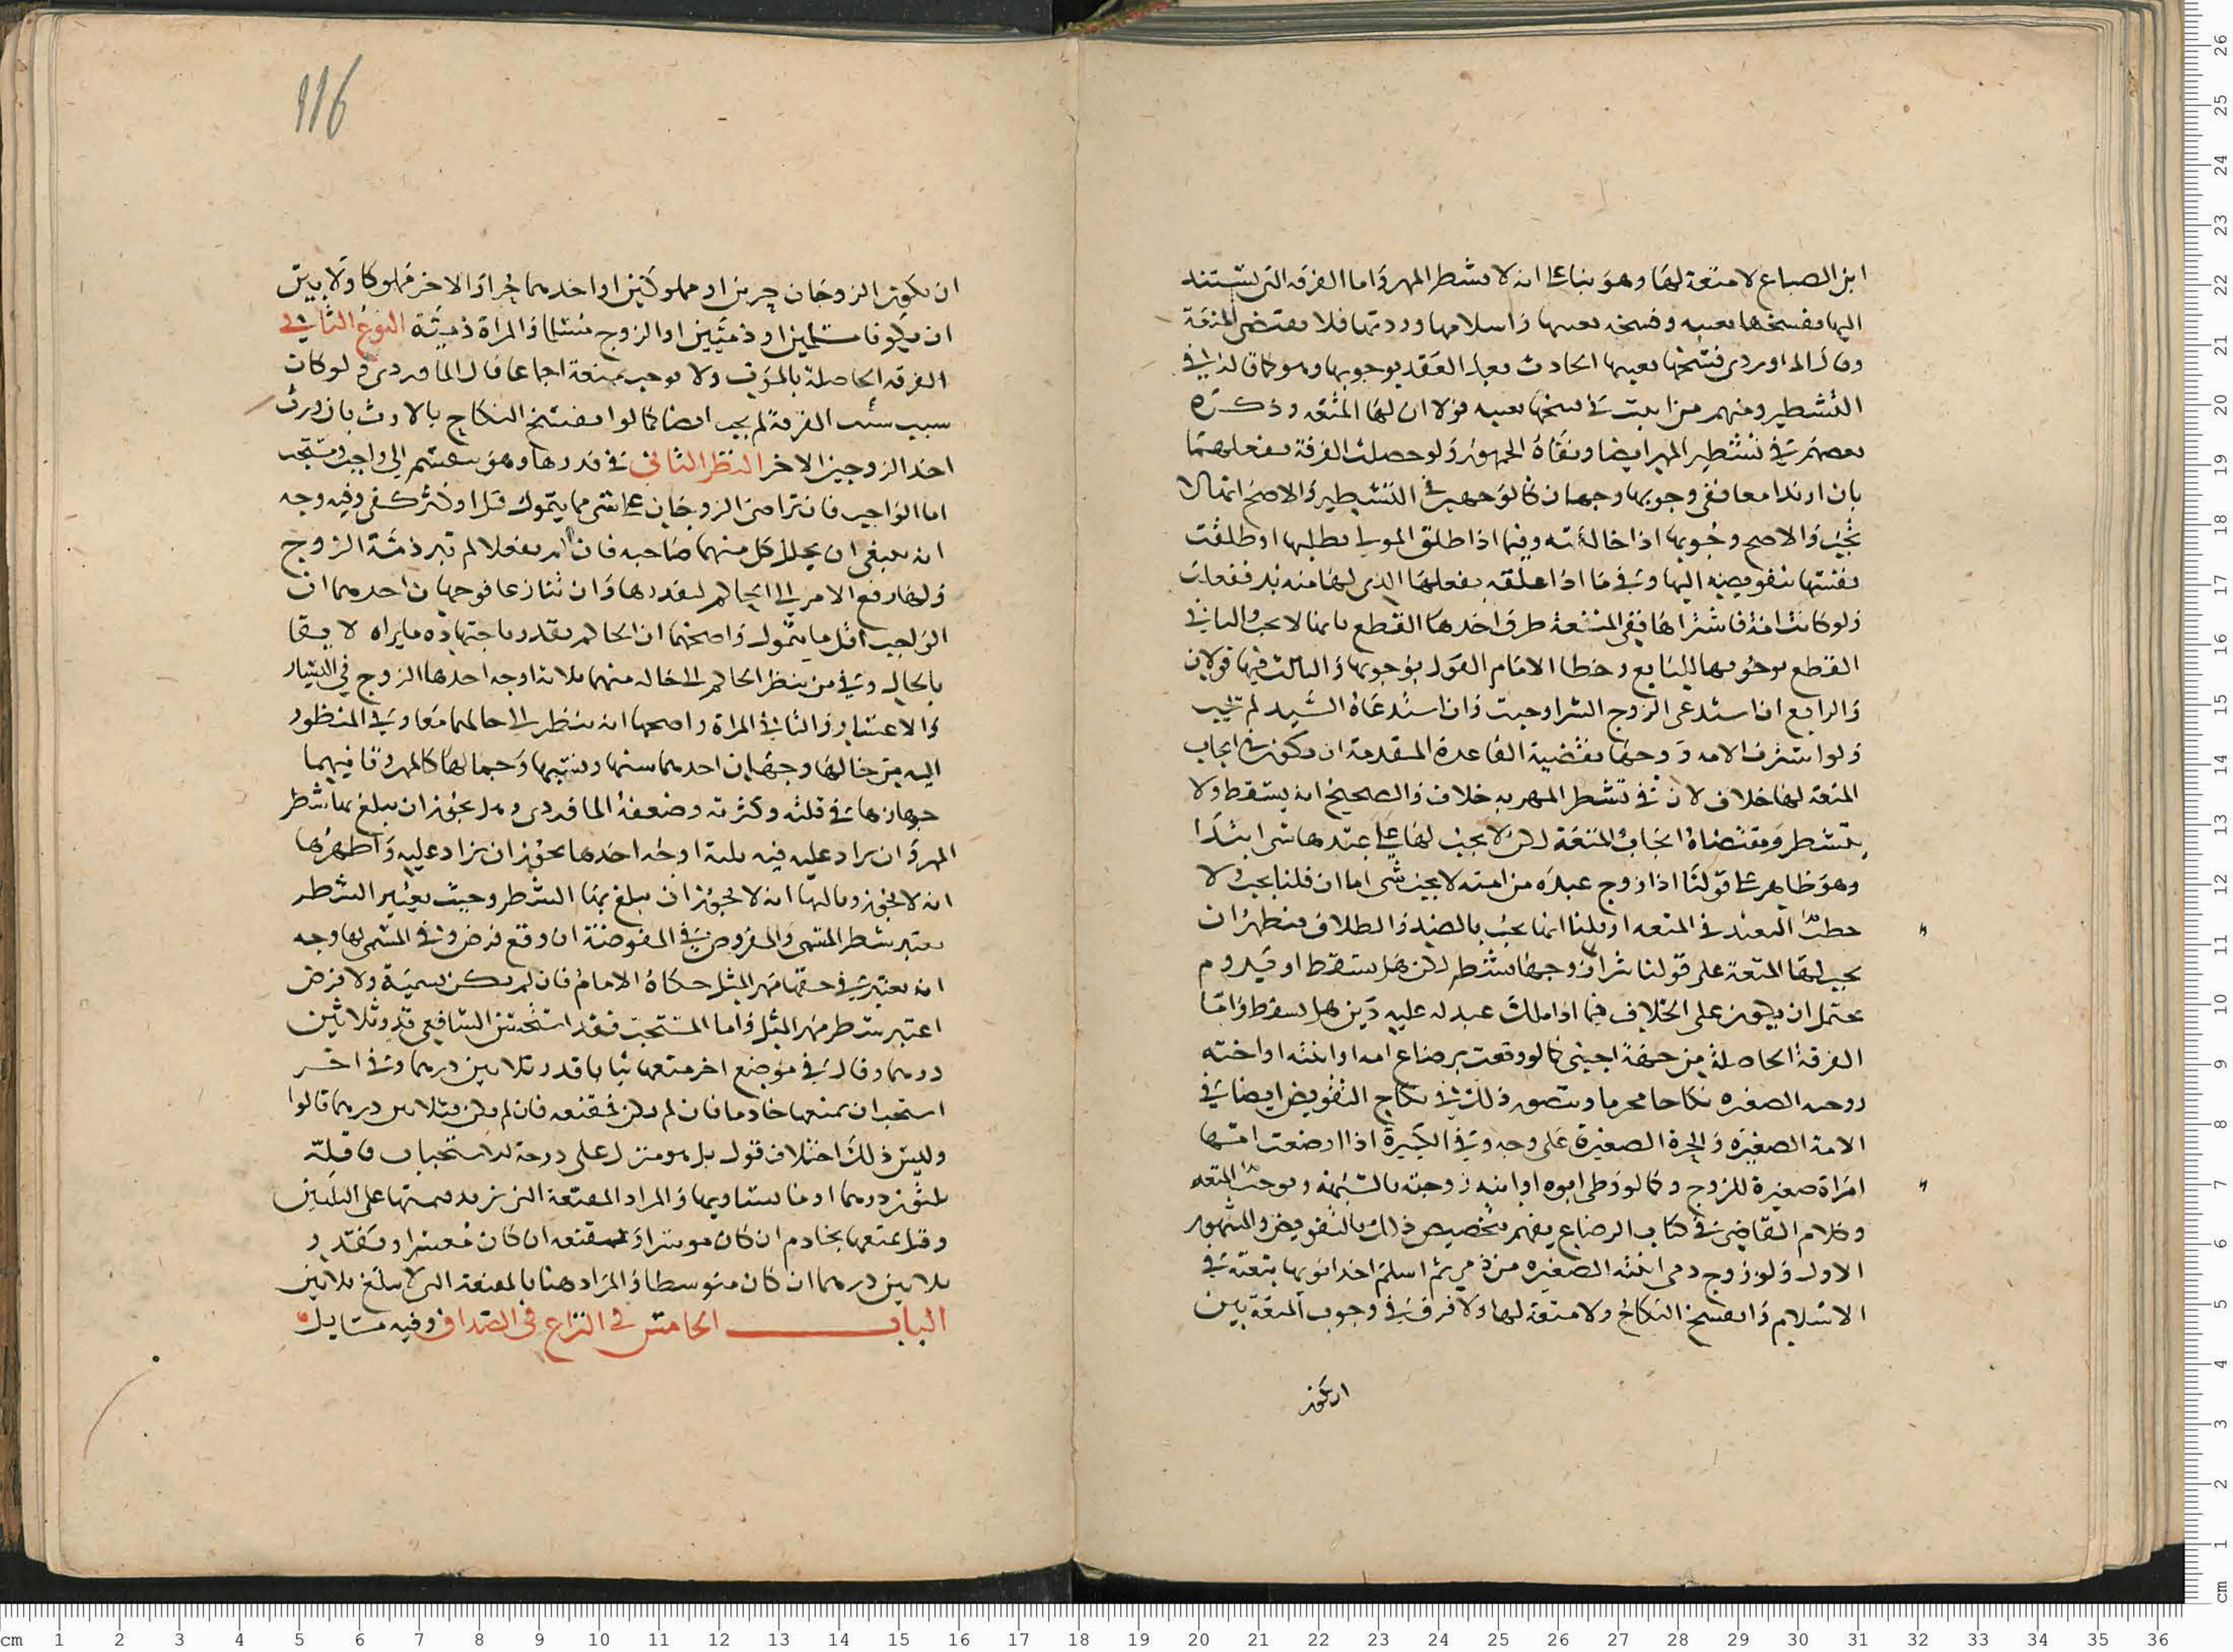 ابن الصباغ لا متعة لها وهو بناء على انه لا يشطر المهر واما الفرقه التى تستند
اليها كفسخها بعيبه وفسخه بعيبها واسلامها وردتها فلا يقتضى المتعة
وقال الماوردى فسخها بعيبها الحادث بعد العقد يوجوبها وهو كما قال فى
التشطير ومنهم من اثبت فى فسخها بعيبه قولا ان لها المتعه وذكره
بعضهم فى تشطير المهر ايضا ونفاه الجمهور ولو حصلت الفرقة بفعلهما
بان ارتدا معا ففى وجوبها وجهان كالوجهين فى التشطير والاصح انها لا
تجب والاصح وجوبها اذا خالعته وفيما اذا طلق المولى بطلبها او طلقت
نفسها بتفويضه اليها وفى ما اذا علقه بفعلها الذى لها منه بد ففعلت
ولو كانت امة فاشتراها ففى المتعة طرق احدها القطع بانها لا تجب والثانى
القطع بوجوبها للبايع وخطا الامام القول بوجوبها والثالث فيها قولان
والرابع ان استدعى الزوج الشرا وجبت وان استدعاه السيد لم تجب
ولو اشترت الامه زوجها فقضية القاعدة المتقدمة ان يكون فى ايجاب
المتعة لها خلاف لان فى تشطر المهر به خلاف والصحيح انه يسقط ولا
يتشطر ومقتضاه ايجاب المتعة لكن لا يجب لها على عبدها شى ابتدا
وهو ظاهر على قولنا اذا زوج عبده من امته لا يجب شى اما ان قلنا يجب ولا
حظ العبد فى المتعه او قلنا انما يجب بالعقد والطلاق فيظهر ان
يجب لها المتعة على قولنا شراؤه زوجها يشطر لكن هل يسقط او يدوم
يحتمل ان يكون على الخلاف فيما اذا ملك عبد له عليه دين هل يسقط واما
الفرقة الحاصلة من جهة اجنبى كما لو وقعت برضاع امه او ابنته او اخته
زوجته الصغيره نكاحا محرما ويتصور ذلك فى نكاح التفويض ايضا فى
الامة الصغيره والحرة الصغيرة على وجه وفى الكبيرة اذا ارضعت امتها
امراة صغيرة للزوج وكما لو وطى ابوه او ابنه زوجته بالشبهة فيوجب المتعه
وكلام القاضى فى كتاب الرضاع يفهم تخصيص ذلك بالتفويض والمشهور
الاول ولو زوج ذمى ابنته الصغيره من ذمى ثم اسلم احد ابويها يتبعه فى
الاسلام وانفسخ النكاح ولا متعة لها ولا فرق فى وجوب المتعة بين
ان يكون
116
ان يكون الزوجان حرين او مملوكين او احدهما حرا والاخر مملوكا ولا بين
ان يكونا مسلمين او ذميين او الزوج مسلما والمراة ذمية النوع الثانى
الفرقه الحاصلة بالموت ولا توجب متعة اجماعا قال الماوردى ولو كان
سبب الفرقة لم يجب ايضا كما لو انفسخ النكاح بالارث بان ورث
احد الزوجين الاخر النظر الثانى فى قدرها وهو ينقسم الى واجب ومستحب
اما الواجب فان تراضى الزوجان على شى مما يتمول قل او كثر كفى وفيه وجه
انه ينبغى ان يحلل كل منهما صاحبه فان لم يفعلا لم تبر ذمة الزوج
ولها رفع الامر الى الحاكم ليقدرها وان تنازعا فوجهان احدهما ان
الواجب اقل ما يتمول واصحهما ان الحاكم يقدر باجتهاده ما يراه لايقا
بالحال وفى من ينظر الحاكم الى حاله منهما ثلاثة اوجه احدها الزوج فى اليسار
والاعسار والثانى المراة واصحها انه ينظر الى حالهما معا وفى المنظور
اليه من حالها وجهان احدهما سنها ونسبها وجمالها كالمهر وثانيهما
جهازها فى قلته وكثرته وضعفه الماوردى وهل يجوز ان يبلغ بها شطر
المهر وان يزاد عليه فيه ثلثة اوجه احدها يجوز ان يزاد عليه واظهرها
انه لا يجوز وثالثها انه لا يجوز ان يبلغ بها الشطر وحيث يعتبر الشطر
يعتبر شطر المسمى والمفروض فى المفوضة ان وقع فرض وفى المسمى لها وجه
انه يعتبر فى حقها مهر المثل حكاه الامام فان لم يكن تسمية ولا فرض
اعتبر شطر مهر المثل واما المستحب فقد استحسن الشافعى قدر ثلاثين
درهما وقال فى موضع اخر متعها ثيابا قدر ثلاثين درهما وفى اخر
استحب ان يمتعها خادما فان لم يكن فمقنعه فان لم يكن فثلاثين درهما قالوا
وليس ذلك اختلاف قول بل هو منزل على درجة الاستحباب فاقله
ثلثون درهما او ما يساويها والمراد المقنعة التى تزيد قيمتها على الثلثين
وقيل يمتعها بخادم ان كان موسرا ومقنعه ان كان معسرا وبقدر
ثلاثين درهما ان كان متوسطا والمراد هنا بالمقنعة التى لا يبلغ ثلاثين
الباب الخامس فى النزاع فى الصداق وفيه مسايل